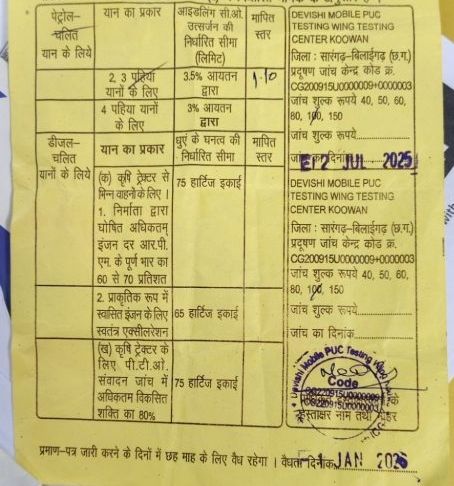 पेट्रोल– चलित यान के लिये
यान का प्रकार
आइडलिंग सी.ओ. उत्सर्जन की निर्धारित सीमा (लिमिट)
मापित स्तर
2, 3 पहिया यानों के लिए
3.5% आयतन द्वारा
1.10
4 पहिया यानों के लिए
3% आयतन द्वारा
डीजल– चलित यानों के लिये
यान का प्रकार
धुएं के घनत्व की निर्धारित सीमा
मापित स्तर
(क) कृषि ट्रेक्टर से भिन्न वाहनों के लिए ।
1. निर्माता द्वारा घोषित अधिकतम् इंजन दर आर.पी. एम. के पूर्ण भार का 60 से 70 प्रतिशत
75 हार्टिज इकाई
2. प्राकृतिक रूप में स्वासित इंजन के लिए स्वतंत्र एक्सीलरेशन
65 हार्टिज इकाई
(ख) कृषि ट्रेक्टर के लिए पी.टी.ओ. संवादन जांच में अधिकतम विकसित शक्ति का 80%
75 हार्टिज इकाई
DEVISHI MOBILE PUC
TESTING WING TESTING
CENTER KOOWAN
जिला : सारंगढ–बिलाईगढ (छ.ग.)
प्रदूषण जांच केन्द्र कोड क्र.
CG200915U0000009+0000003
जांच शुल्क रूपये 40, 50, 60,
80, 100, 150
जांच शुल्क रूपये
जांच का दिनांक
2 JUL 2025
DEVISHI MOBILE PUC
TESTING WING TESTING
CENTER KOOWAN
जिला : सारंगढ–बिलाईगढ (छ.ग.)
प्रदूषण जांच केन्द्र कोड क्र.
CG200915U0000009+0000003
जांच शुल्क रूपये 40, 50, 60,
80, 100, 150
जांच शुल्क रूपये
जांच का दिनांक
Devishi Mobile PUC Testing
Code
के
हस्ताक्षर नाम तथा मोहर
प्रमाण–पत्र जारी करने के दिनों में छह माह के लिए वैध रहेगा । वैधता दिनांक
1 JAN 2026